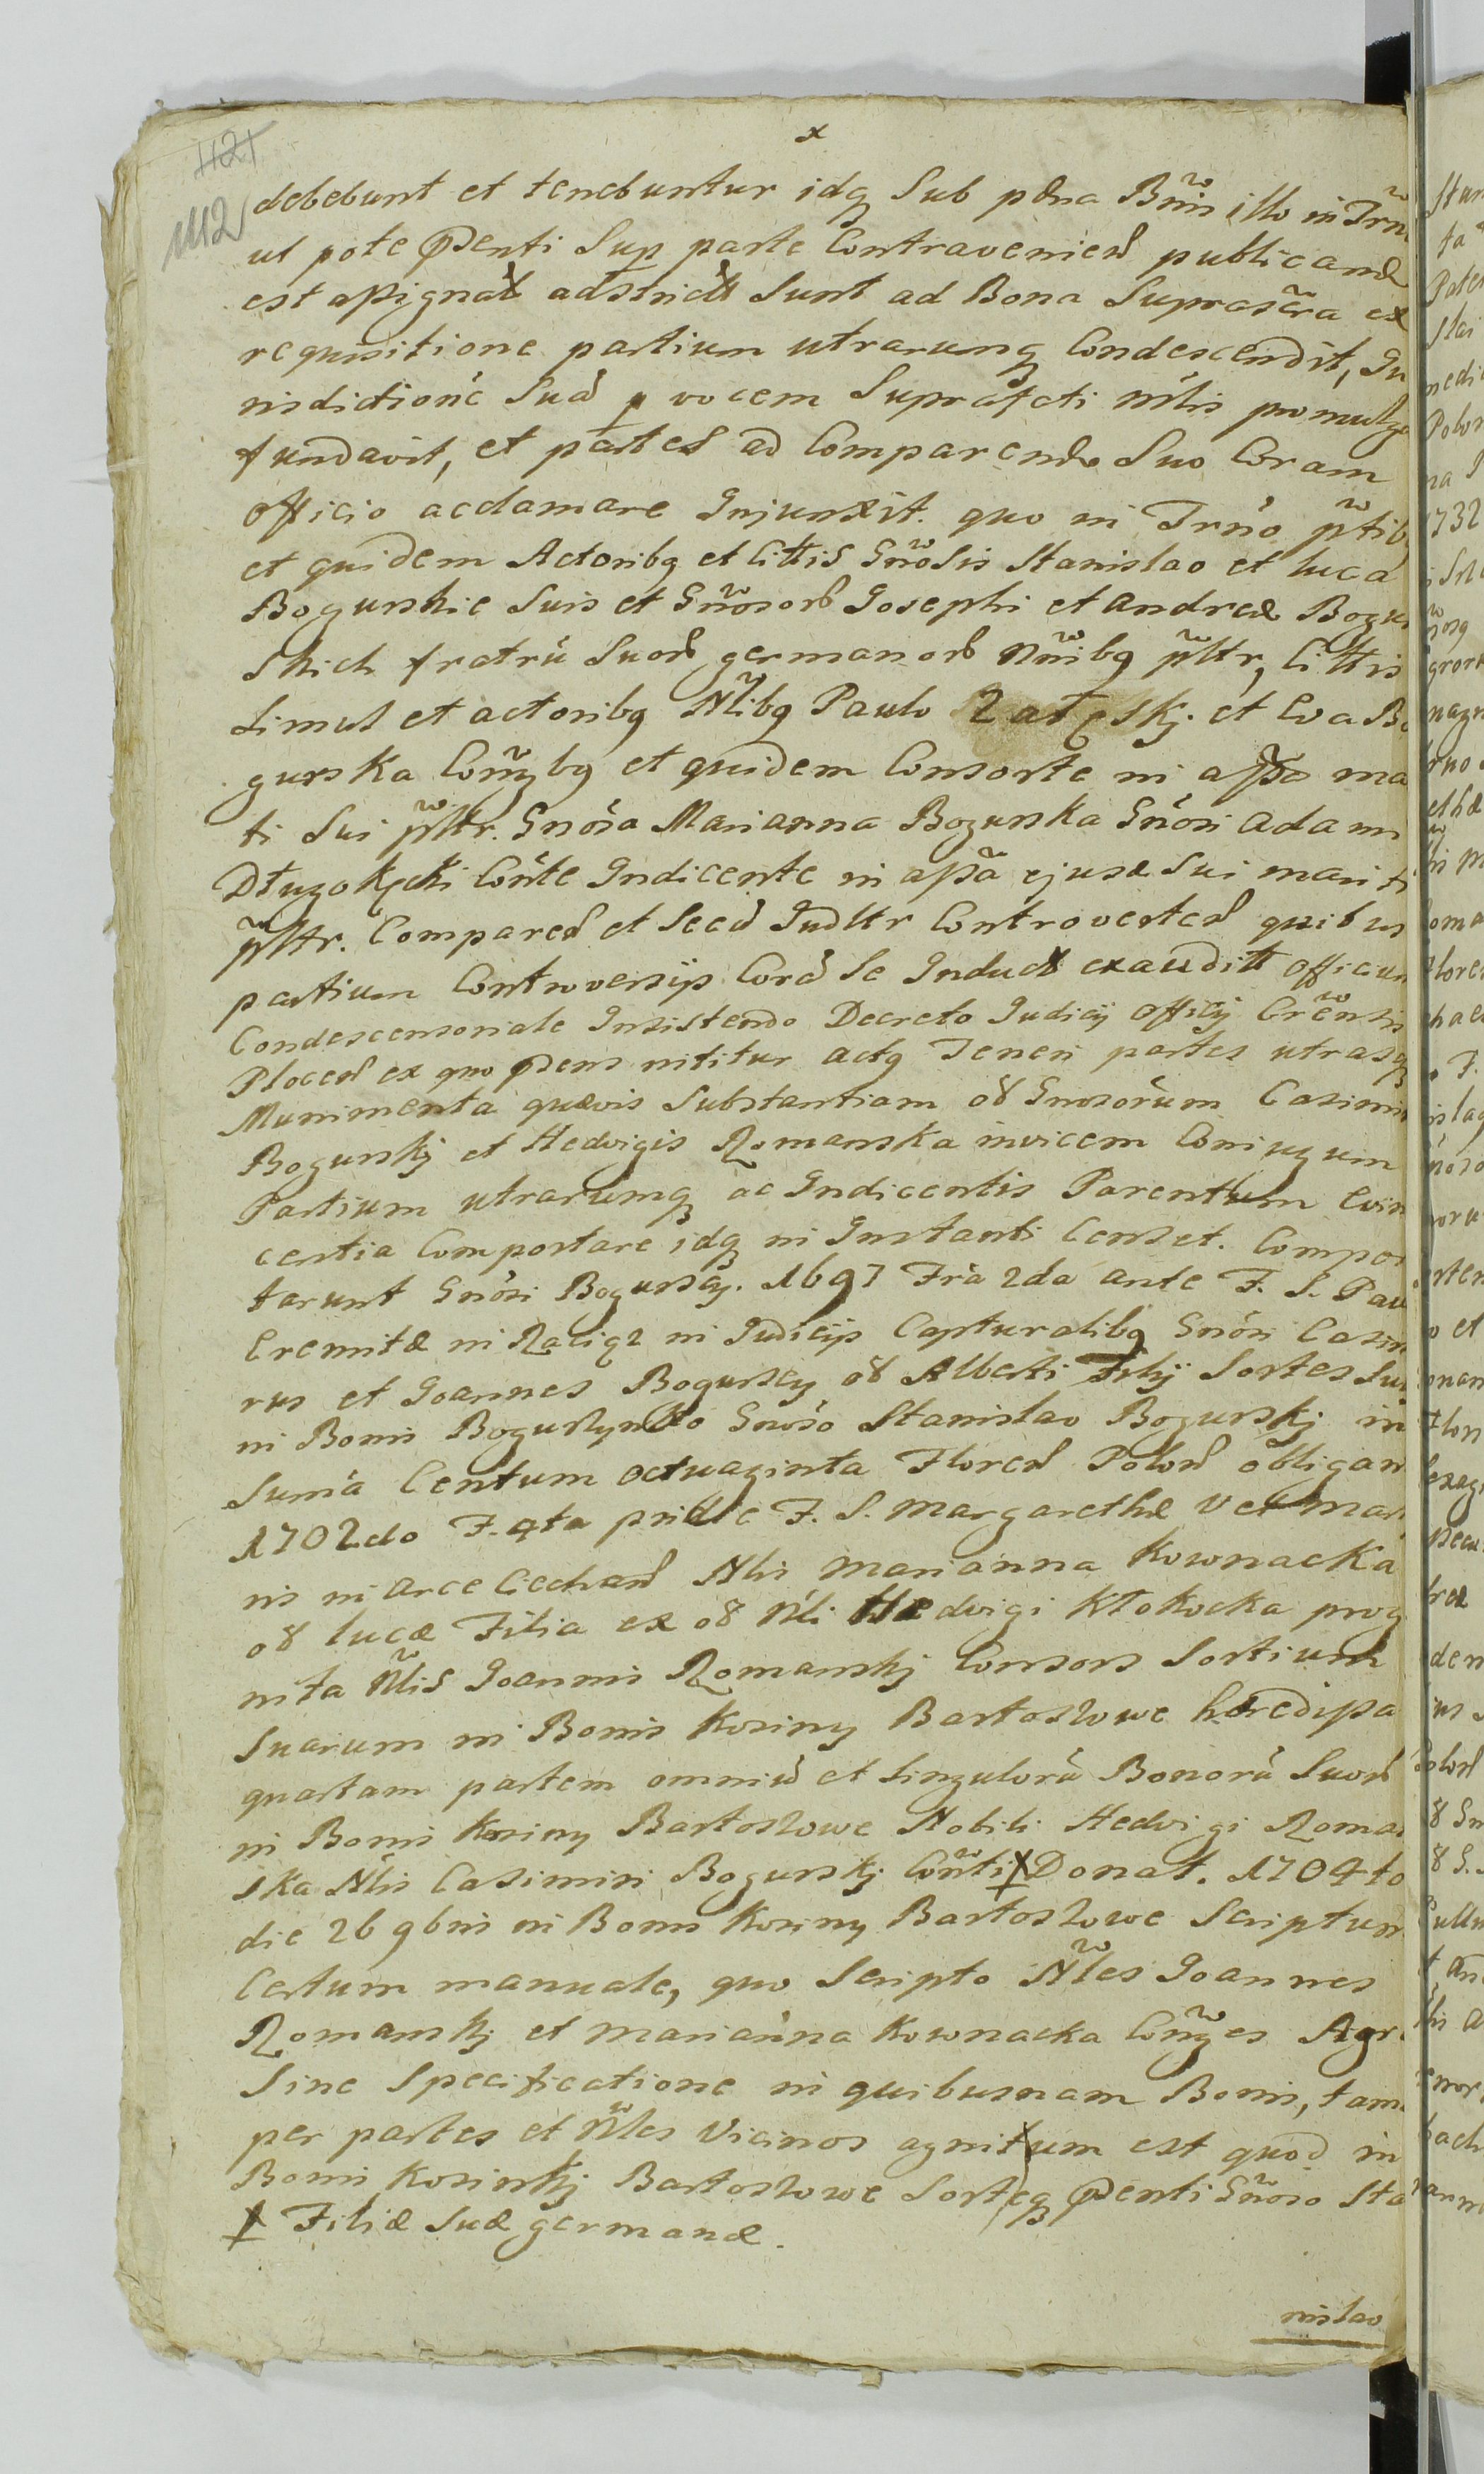 x
1121
1112
debebunt et tenebuntur idq Sub pæna Bnnis illo in Trno
ut pote pdenti Sup parte Contravenien publicand
est assignat adstrict Sunt ad Bona Suprascra ex
requisitione partium utrarumq Condescendit, Ju
risdictioné Suá p vocem Suprafati Mlis promulga
fundavit, et partes ad Comparend Suo Coram
Officio acclamare Injunxit. quo in Trno ptibq
et quidem Actoribq et Cittis Gnosis Stanislao et Luca
Bogurskie Suis et Gnosor Josephi et Andreæ Bogur
skich fratrú Suor germanor Nnibq pltr, Cittis
Simul et actoribq Nlibq Paulo et Eva Bo
gurska Conjgbq et quidem Consorte in assa ma
ti Sui pltr. Gnosa Marianna Bogurska Gnosi Adam
Dłuzokęcki Conte Indicente in assa ejusd Sui mariti
pltr. Comparen et Secú Judltr Controverten quibus
partium Controversijs Corá Se Induct exaudit Officium
Condescensoriale Insistendo Decreto Judicij Officij Crensis
Plocen ex quo pdens nititur actq Teneri partes utrasq
Munimenta quævis Substantiam oð Gnosorum Casimiri
Bogurskj et Hedvigis Romanska invicem Coniugum
Partium utrarumq ac Indicentis Parentum Evin
centia Comportare idq in Instanti Censet. Compor
tarunt Gnosi Bogurscy. 1697 Fra 2da ante F. S. Pau
Eremitæ in Raciąz in Judicijs Capturalibq Gnosi Casimi
rus et Joannes Bogurscy oð Alberti Filij Sortes Sua
in Bonis Bogurzyn Gnoso Stanislao Bogurskj in
Suma Centum octuaginta Floren Polon obligan
1702do F. 4ta pridie F. S. Margarethæ V et Mart
is in Arce Ciechan Nlis Marianna Kownacka
oð Lucæ Filia ex oð Nli Hedvigi Kłokocka prog
nita Nlis Joannis Romanskj Consors Sortium
Suarum in Bonis Kosiny Bartoszowe hæredissa
quartam partem omniú et Singulorú Bonorú Suor
in Bonis Kosiny Bartoszowe Nobili Hedvigi Roman
ska Nlis Casimiri Bogurskj Conti ҂ Donat. 1704to
die 26 9bris in Bonis Kosiny Bartoszowe Scriptum
Certum manuale, quo Scripto Nles Joannes
Romanskj et Marianna Kownacka Conjges Agr
Sine Specificatione in quibusnam Bonis, tam
per partes et Nles Vicinos agnitum est quod in
Bonis Kosinskj Bartoszowe Sorteq pdenti Gnoso Sta
҂ Filiæ Suæ germanæ.
nislao